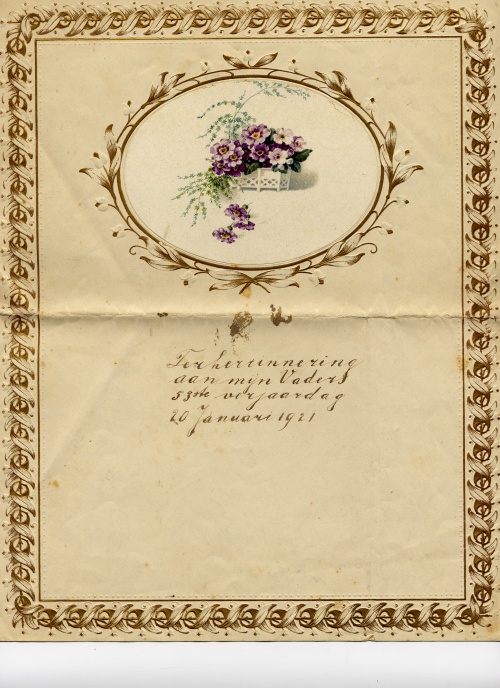 Ter herrinnering
aan mijn Vaders
53ste verjaardag
20 Januari 1921